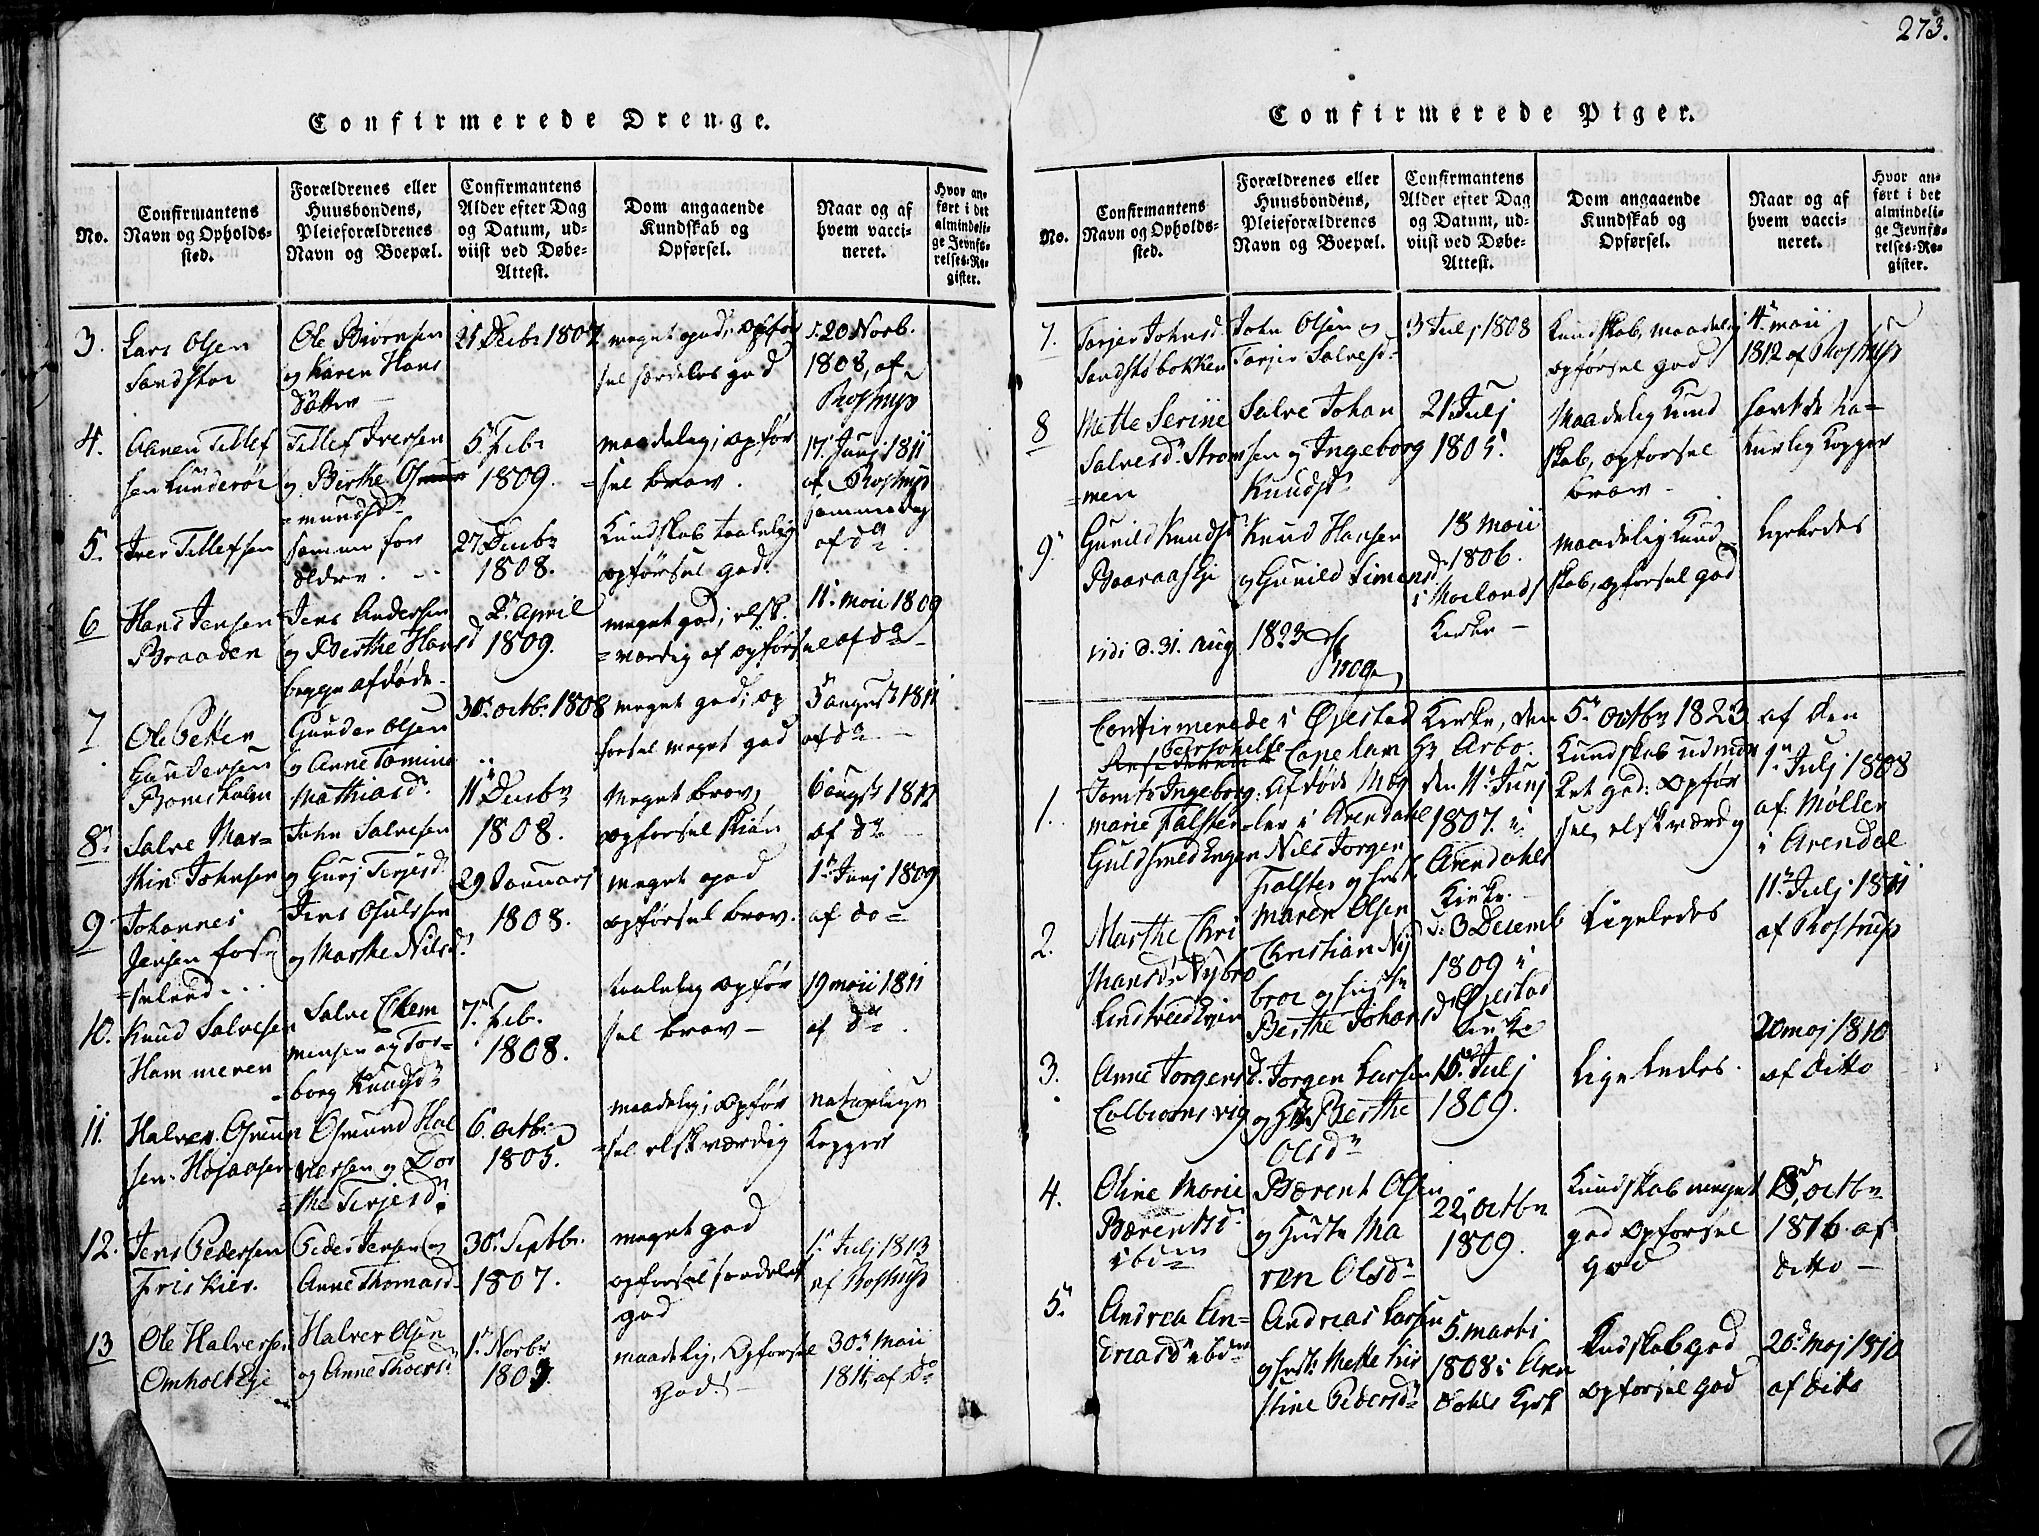 273.
Confirmerede Drenge.
No.
Confirmantens
Navn og Opholds-
sted.
Forældrenes eller
Huusbondens,
Pleieforældrenes
Navn og Boepæl.
Confirmantens
Alder efter Dag
og Datum, ud-
viist ved Døbe-
Attest.
Dom angaaende
Kundskab og
Opførsel.
Naar og af
hvem vacci-
neret.
Hvor an-
ført i det
almindeli-
ge Jevnfø-
relses-Re-
gister.
3.
Lars Olsen
Sandstøe
Ole Biørnsen
og Karen Hans
datter
21 Decbr 1807
meget god, opfør
sel særdeles god
d. 20 Novb.
1808, af
Rostrup
4.
Aanen Tellef
sen Lunderöe
Tellef Iversen
og Berthe Os
=mundsdr
5 Febr
1809.
maadelig; opfør
=sel brav.
17. Junj 1811
af Rostrup
5.
Iver Tellefsen
samme for
ældre.
27 Decbr
1808.
Kundskab taalelig
opførsel god.
samme dag
af do
6
Hans Jensen
Braaden
Jens Andersen
og Berthe Hansd
begge afdöde.
2. april
1809.
meget god; elsk
=værdig af opførsel
11. maii 1809
af do
7
Ole Petter
Gundersen
Bomsholm
Gunder Olsen
og Anne Tomine
Mathiasd.
30. octbr 1808
meget god; op
førsel meget god
3 august 1811
af do
8.
Salve Mar=
thin Johnsen
John Salvesen
og Gurj Terjesd.
11 Decbr
1808.
Meget brav,
opførsel skiøn
6 augst 1812
af do
9
Johannes
Jensen fos=
=selund
Jens Osulssen
og Marthe Nilsd.
29 Januarj
1808.
meget god
opførsel brav.
1. Junj 1809
af do
10.
Knud Salvesen
Hammeren
Salve Clem
mensen og Tor=
=borg Knudsdr
7. Feb.
1808.
taalelig opfør
sel brav
19 maii 1811
af do
11.
Halver Osmun
sen Høiaasen
Osmund Hal
versen og Dor
=the Terjesd.
6. octbr
1805.
maadelig; opfør
=sel elskværdig
naturlige
Kopper
12.
Jens Pedersen
Friskier.
Peder Jensen og
Anne Thomasd
30. Septbr.
1807.
meget god
opførsel særdeles
god
1. Julj 1813
af Rostrup
13
Ole Halversen
Omholt Eje
Halver Olsen
og Anne Thoersd
1. Novbr
1807.
maadelig, Opførsel
god
30. Maii
1811, af Do
Confirmerede Piger.
No.
Confirmantens
Navn og Opholds-
sted.
Forældrenes eller
Huusbondens,
Pleieforældrenes
Navn og Boepæl.
Confirmantens
Alder efter Dag
og Datum, ud-
viist ved Døbe-
Attest.
Dom angaaende
Kundskab og
Opførsel.
Naar og af
hvem vacci-
neret.
Hvor an-
ført i det
almindeli-
ge Jevnfø-
relses-Re-
gister.
7.
Torjer Johnsd.
Sandstøbakken
John Olsen og
Torjer Salvesd
3 Julj 1808
Kundskab, maadelig
opførsel god
4. maii
1812 af Rostrup
8
Mette Serine
Salvesdr. Strøm
=men
Salve Johan
sen og Ingeborg
Knudsdr
21 Julj
1805.
Maadelig Kund
skab, opførsel
brav
havt de na=
turlig Kopper
9.
Gunild Knudsd
Baaraas Eje
Knud Hansen
og Gunild Simensd.
18 Maii
1806.
i Moelands
Kirke
maadelig Kund
skab, opførsel god
ligeledes
vidi d. 31. Aug 1823
Confirmerede i Øjestad Kirke, den 5. octbr 1823 af den
personelle Capelan Hr Arbo.
1.
Jomfr Ingeborg
Marie Falster
Guldsmedengen
Afdöde Møl
=ler i Arendahl
Nils Jørgen
Falster og Hust.
Maren Olsen
den 11. Junj
1807. i
Arendahls
Kirke
Kundskab udmær
ket god: opfør
sel, elskværdig
1. Julj 1808
af Møller
i Arendal
2.
Marthe Chri
stiansdr Nybro
Lindtveedt Ejer
Christian Nij
broe og Hustr
Berthe Johansd
d. 3 Decemb
1809 i
Øjestad
Kirke
Ligeledes
11. Julj 1811
af Rostrup
3.
Anne Jorgensd.
Colbiørnsvig
Jorgen Larsen
og H. Berthe
Olsdr
15. Julj
1809.
Ligeledes.
20 maj 1810
af ditto
4.
Oline Marie
Bærentsd
ibdm
Bærent Olsen
og Hustr Ma
ren Olsdr
22 octbr
1809.
Kundskab meget
god opførsel
god
18. octbr
1816 af
ditto
5.
Andrea An=
dreasdr ibdm
Andreas Larsen
og Hust. Mette Kir
stine Pedersdr
5. marti
1808 i Aren
dahls Kirk
Kundskab god
opførsel god
20. Maj 1810
af ditto